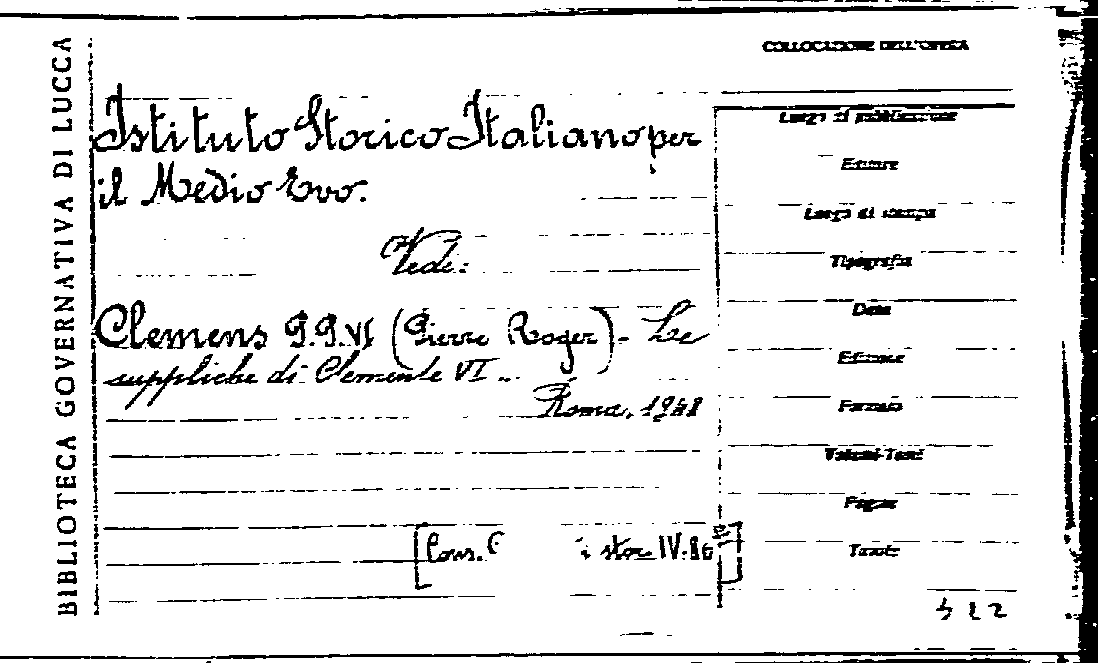 BIBLIOTECA GOVERNATIVA DI LUCCA
COLLOCAZIONE DELL'OPERA
Istituto Storico Italiano per
il Medio Evo.
Vedi:
Clemens P.P. VI (Pierre Roger) - Le
suppliche di Clemente VI..
Roma, 1948
[Cons. i stor IV. 86]
Luogo di pubblicazione
Editore
Luogo di stampa
Tipografia
Data
Edizione
Formato
Volumi-Tomi
Pagine
Tavole
522